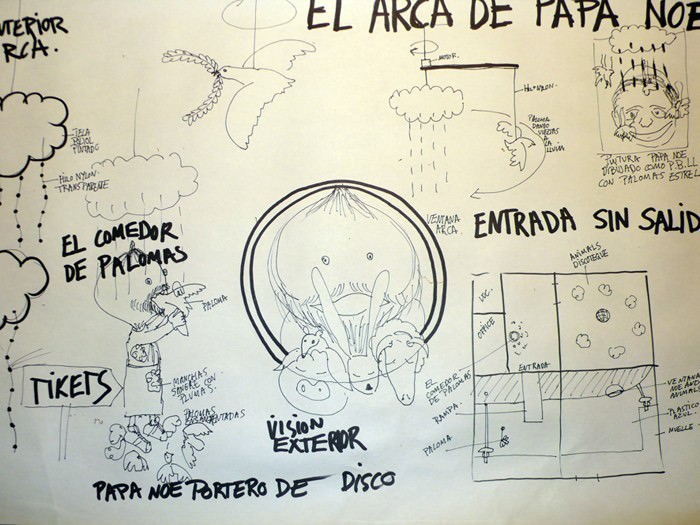 EL ARCA DE PAPA NOE
NTERIOR
RCA.
TELA
PINTADO
HILO NYLON
TRANSPARENTE
MOTOR
HILO NYLON
PALOMA
DANDO
VUELTAS
A LA
LLUVIA
PINTURA PAPA NOE
DIBUJADO COMO P.B.LL
CON PALOMAS ESTREL
VENTANA
ARCA.
ENTRADA SIN SALID
EL COMEDOR
DE PALOMAS
PALOMA
TIKETS
MANCHAS
SANGRE CON
PLUMAS.
PALOMAS
VISION
EXTERIOR
PAPA NOE PORTERO DE DISCO
ANIMALS
DISCOTEQUE
LOC.
OFFICE
ENTRADA
EL COMEDOR
DE PALOMAS
RAMPA.
PALOMA
VENTANA
NOE AND
ANIMALS
PLASTICO
AZUL.
MUELLE